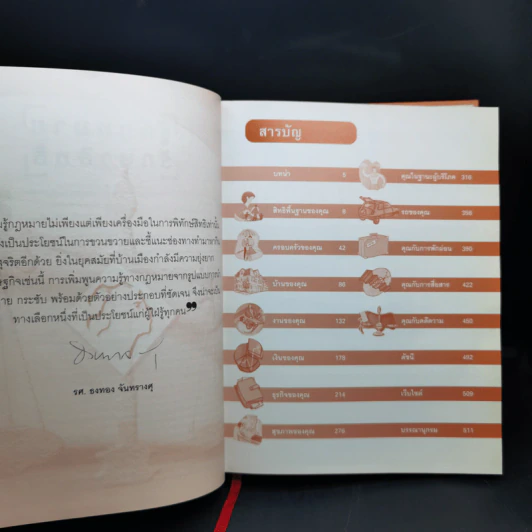 รู้กฎหมายไม่เพียงแต่เพียงเครื่องมือในการพิทักษ์สิทธิเท่านั้น
เป็นประโยชน์ในการขวนขวายและชี้แนะช่องทางทำมาหากิน
สุจริตอีกด้วย ยิ่งในยุคสมัยที่บ้านเมืองกำลังมีความยุ่งยาก
เช่นนี้ การเพิ่มพูนความรู้ทางกฎหมายจากรูปแบบ
กระชับ พร้อมด้วยตัวอย่างประกอบที่ชัดเจน จึงน่าจะเป็น
ทางเลือกหนึ่งที่เป็นประโยชน์แก่ผู้ใฝ่รู้ทุกคน”
รศ. ธงทอง จันทรางศุ
สารบัญ
บทนำ
สิทธิพื้นฐานของคุณ
ครอบครัวของคุณ 42
บ้านของคุณ
งานของคุณ 132
เงินของคุณ
ธุรกิจของคุณ 214
สุขภาพของคุณ
คุณในฐานะผู้บริโภค
รถของคุณ
คุณกับการพักผ่อน
คุณกับการสื่อสาร 422
คุณกับคดีความ
ดัชนี
เว็บไซต์
บรรณานุกรม 511